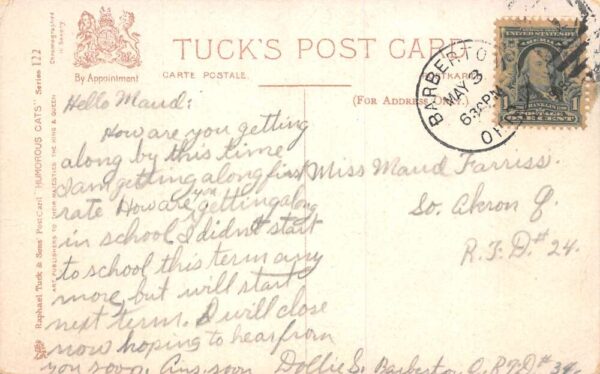 By Appointment
Chromographed
in Saxony
TUCK'S POST CARD
CARTE POSTALE.
(FOR ADDRESS ONLY.)
BARBERTON
MAY 3
630PM
OHIO
POSTAGE
ONE CENT
FRANKLIN
Raphael Tuck & Sons' Post Card "HUMOROUS CATS" Series 122
ART PUBLISHERS TO THEIR MAJESTIES THE KING & QUEEN
Hello Maud:
How are you getting
along by this time
I am getting along first
rate How are you getting along
in school I didn't start
to school this term any
more, but will start
next term. I will close
now hoping to hear from
you soon. Ans. soon
Dollie S. Barberton, O. R.F.D.# 34.
Miss Maud Farriss.
So. Akron O.
R.F.D.# 24.